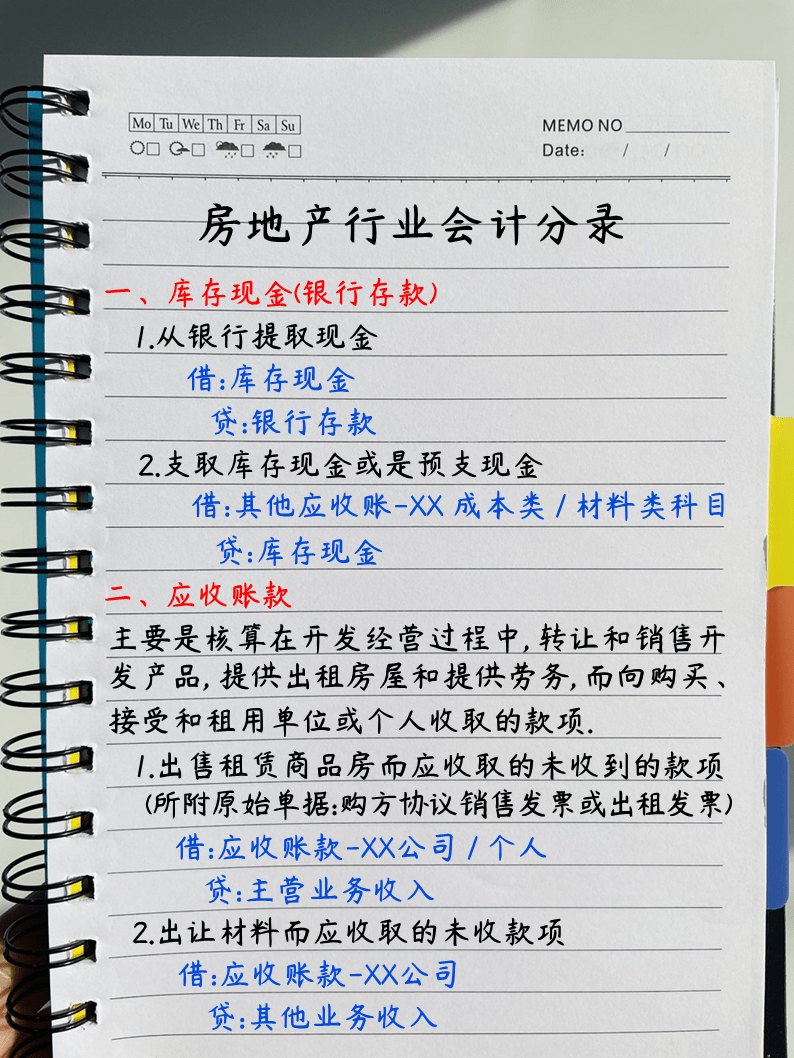 Mo Tu We Th Fr Sa Su
MEMO NO
Date: / /
房地产行业会计分录
一、库存现金(银行存款)
1.从银行提取现金
借:库存现金
贷:银行存款
2.支取库存现金或是预支现金
借:其他应收账-XX 成本类 / 材料类科目
贷:库存现金
二、应收账款
主要是核算在开发经营过程中,转让和销售开
发产品,提供出租房屋和提供劳务,而向购买、
接受和租用单位或个人收取的款项.
1.出售租赁商品房而应收取的未收到的款项
(所附原始单据:购方协议销售发票或出租发票)
借:应收账款-XX公司 / 个人
贷:主营业务收入
2.出让材料而应收取的未收款项
借:应收账款-XX公司
贷:其他业务收入